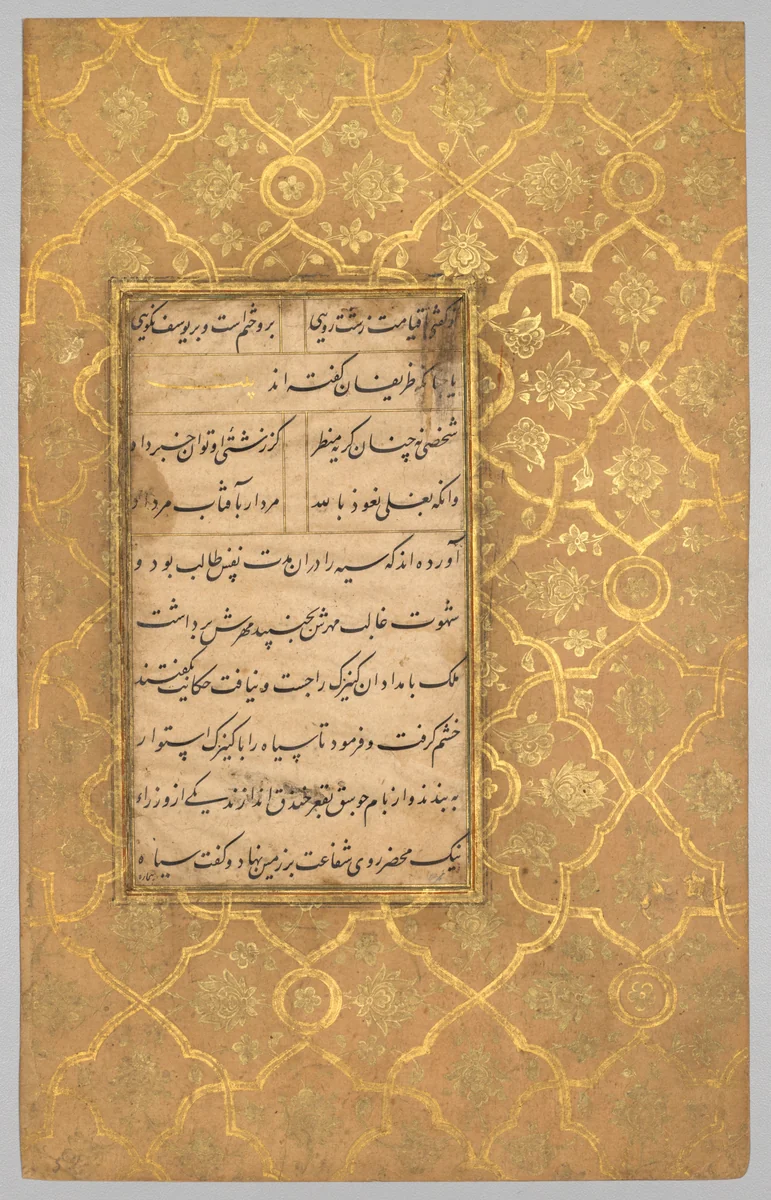 تو گفتی قیامت زشت رویی برو ختم است و بر یوسف نکویی
چنانکه ظریفان گفته اند بیت
شخصی نه چنان کریه منظر کز زشتی او توان خبر داد
وانکه بغلی نعوذ بالله مردار بآفتاب مرداد
آورده اند که سیه را دران مدت نفس طالب بود و
شهوت غالب مهرش بجنبید مهرش برداشت
ملک بامدادان کنیزک را جست و نیافت حکایت بگفتند
خشم گرفت و فرمود تا سیاه را با کنیزک استوار
به بندند و از بام جوسق بقعر خندق اندازند یکی از وزراء
نیک محضر روی شفاعت بر زمین نهاد و گفت سیاه
بیچاره